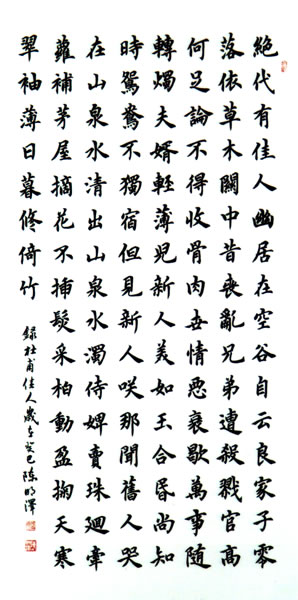 絕代有佳人幽居在空谷自云良家子零
落依草木關中昔喪亂兄弟遭殺戮官高
何足論不得收骨肉世情惡衰歇萬事隨
轉燭夫婿輕薄兒新人美如玉合昏尚知
時鴛鴦不獨宿但見新人咲那聞舊人哭
在山泉水清出山泉水濁侍婢賣珠迴牽
蘿補茅屋摘花不插髮采柏動盈掬天寒
翠袖薄日暮修倚竹
錄杜甫佳人歲癸巳陳明澤